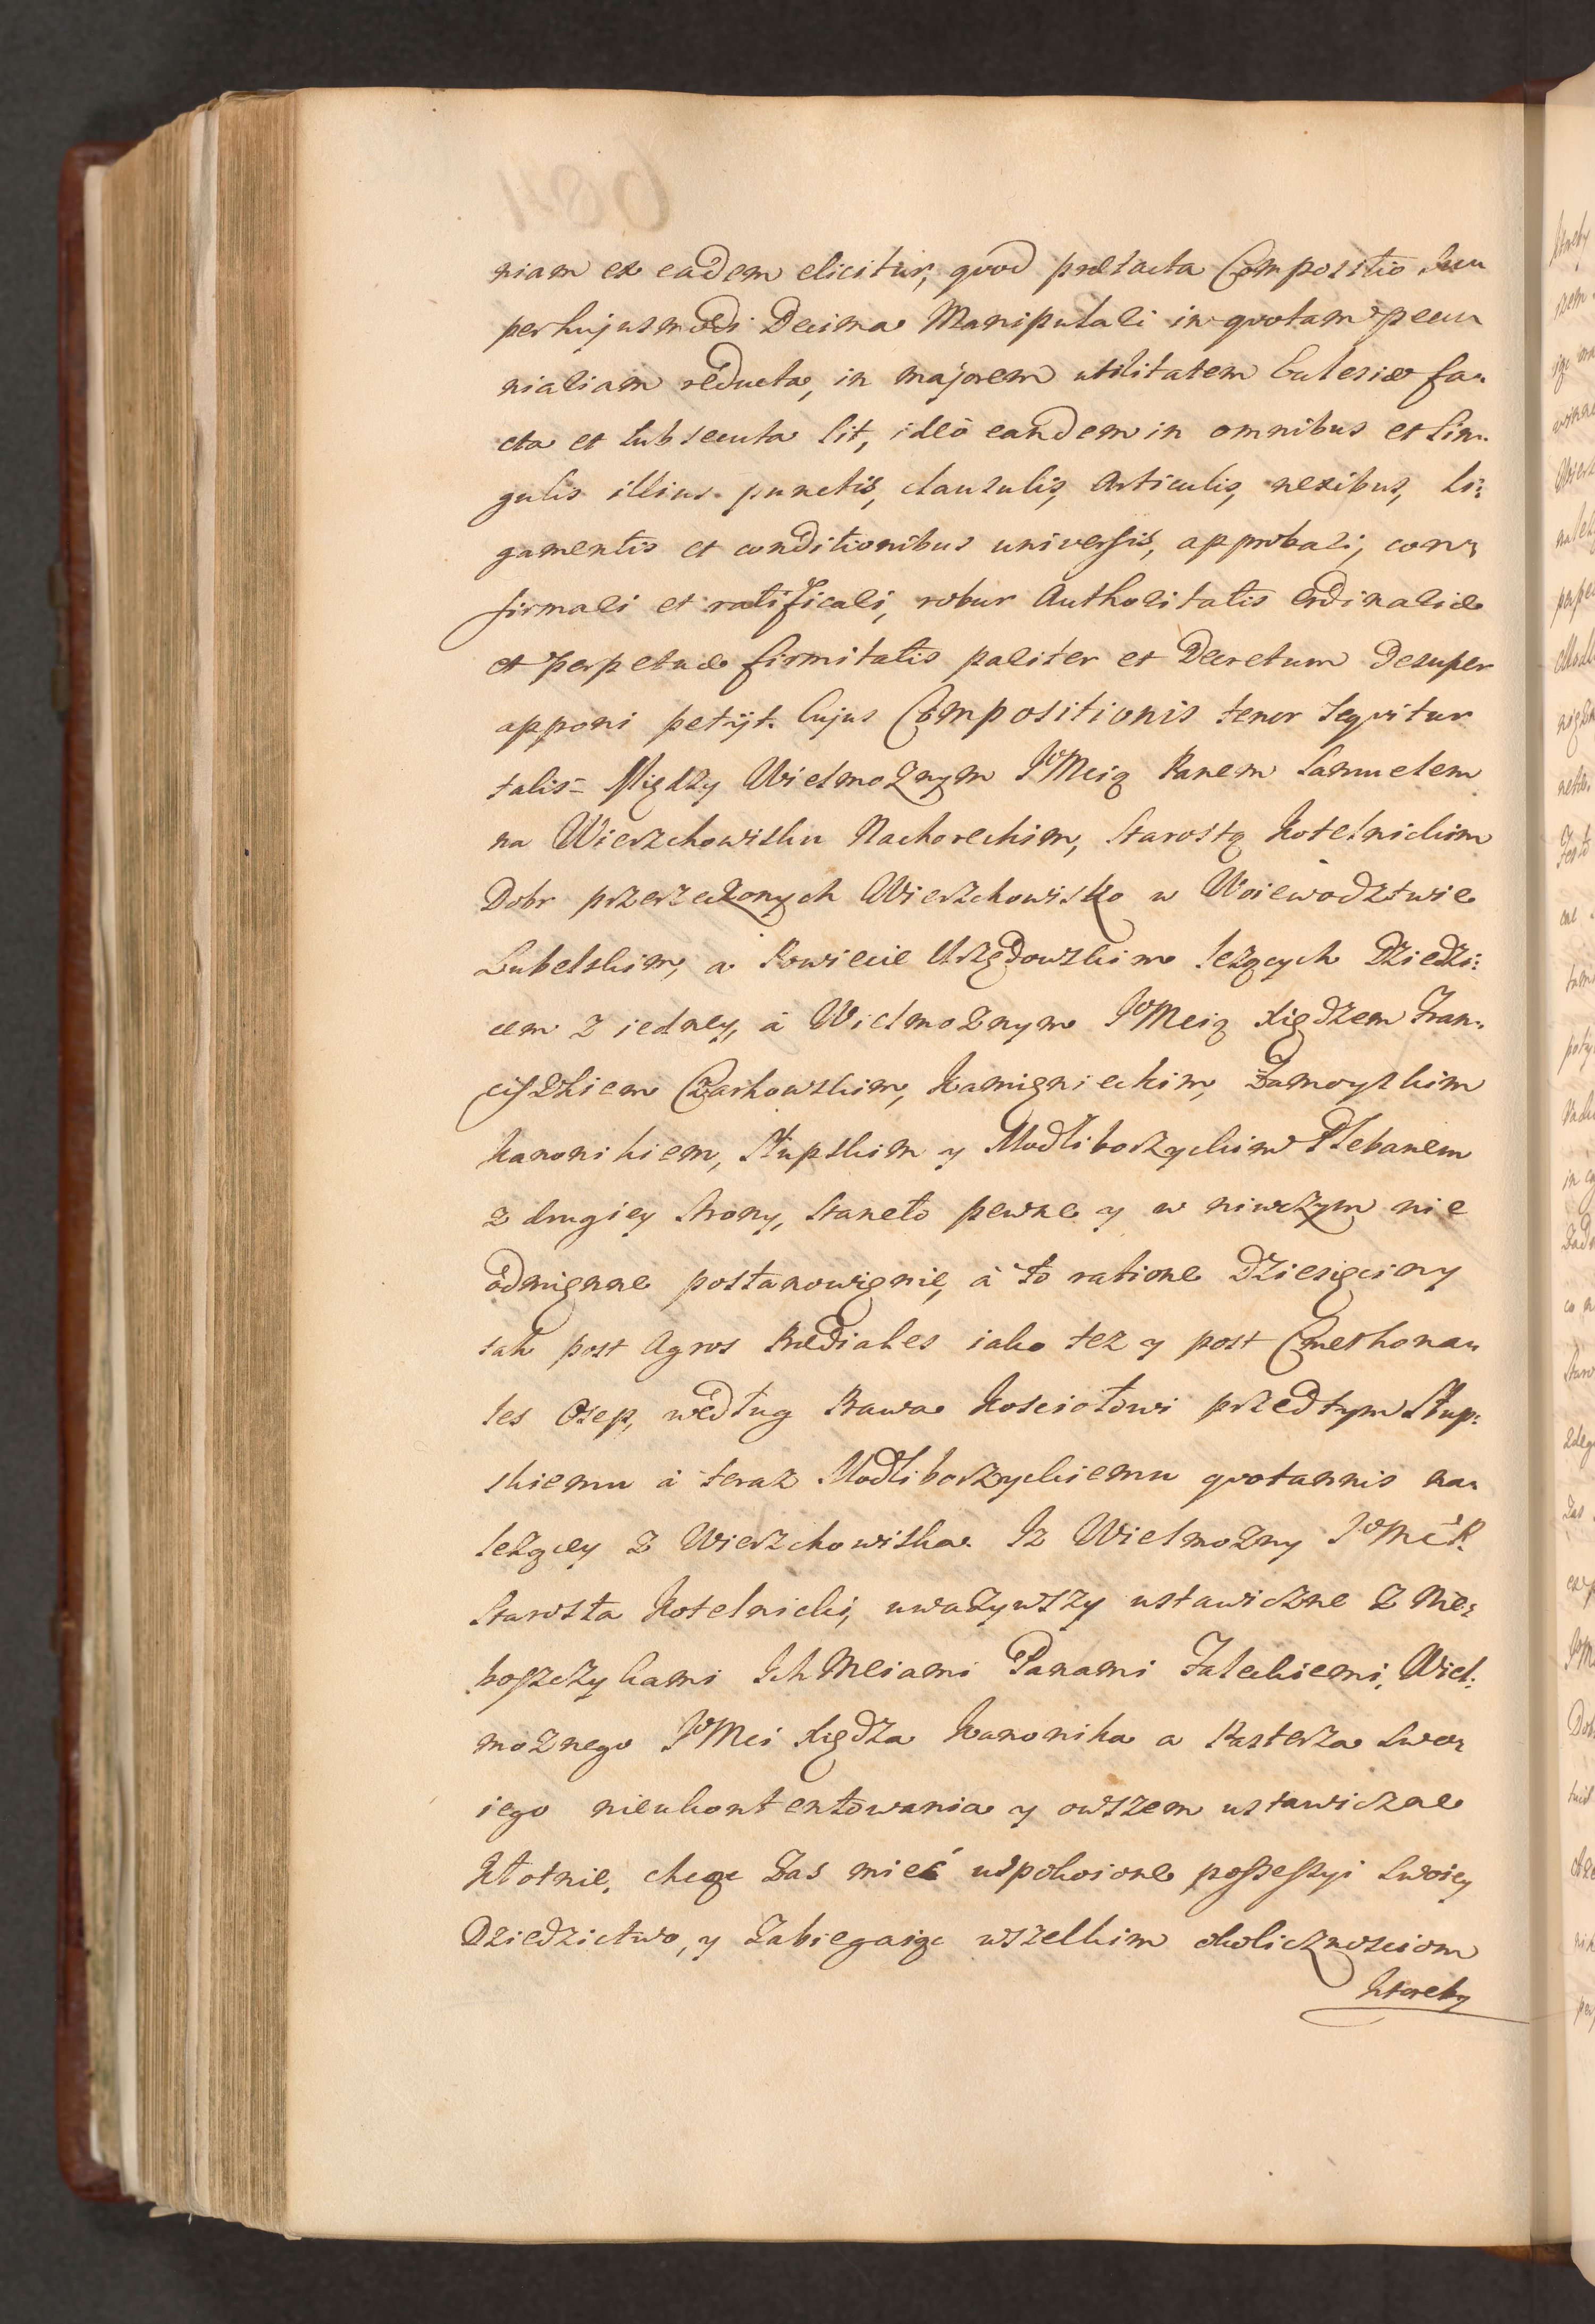 niam ex eadem elicitur, quod prætacta Compositio su„
per hujusmodi Decima Manipulari in quotam pecu„
niariam reducta, in majorem utilitatem Eclesiæ fa„
cta et subsecuta sit, ideò eandem in omnibus et sin„
gulis illius punctis, clausulis, articulis, nexibus, li„
gamentis et conditionibus universis, approbari, con„
firmari et ratificari, robur Authoritatis Ordinariæ
et perpetuæ firmitatis pariter et Decretum desuper
apponi petijt. Cujus Compositionis tenor sequitur
talis = Między Wielmożnym JoMcią Panem Samuelem
na Wierzchowisku Nachoreckim, Starostą Kotelnickim
Dobr przerzeczonych Wierzchowisko w Woiewodztwie
Lubelskim, a Powiecie Urzędowskim leżących Dziedzi„
cem z iedney, à Wielmożnym JoMcią Xiędzem Fran„
ciszkiem Czarkowskim, Kamienieckim, Zamoyskim
Kanonikiem, Słupskim y Modliborzyckim Plebanem
z drugiey strony, stanęło pewne y w niwczym nie
odmienne postanowienie, à to ratione Dziesięciny
tak post Agros Prædiales iako też y post Cmethona„
les Osep, według Prawa Kosciołowi przedtym Słup„
skiemu à teraz Modliborzyckiemu quotannis na„
leżącey z Wierzchowiska. Iż Wielmożny JoMć P.
Starosta Kotelnicki, uważywszy ustawiczne z Nie„
boszczykami IchMciami Panami Załeckiemi, Wiel„
możnego JoMci Xiędza Kanonika a Pasterza swo„
iego nieukontentowania y owszem ustawiczne
Kłotnie, chcąc zas mieć uspokoione possessyi swoiey
Dziedzictwo, y zabiegaiąc wszelkim okolicznosciom
ktoreby